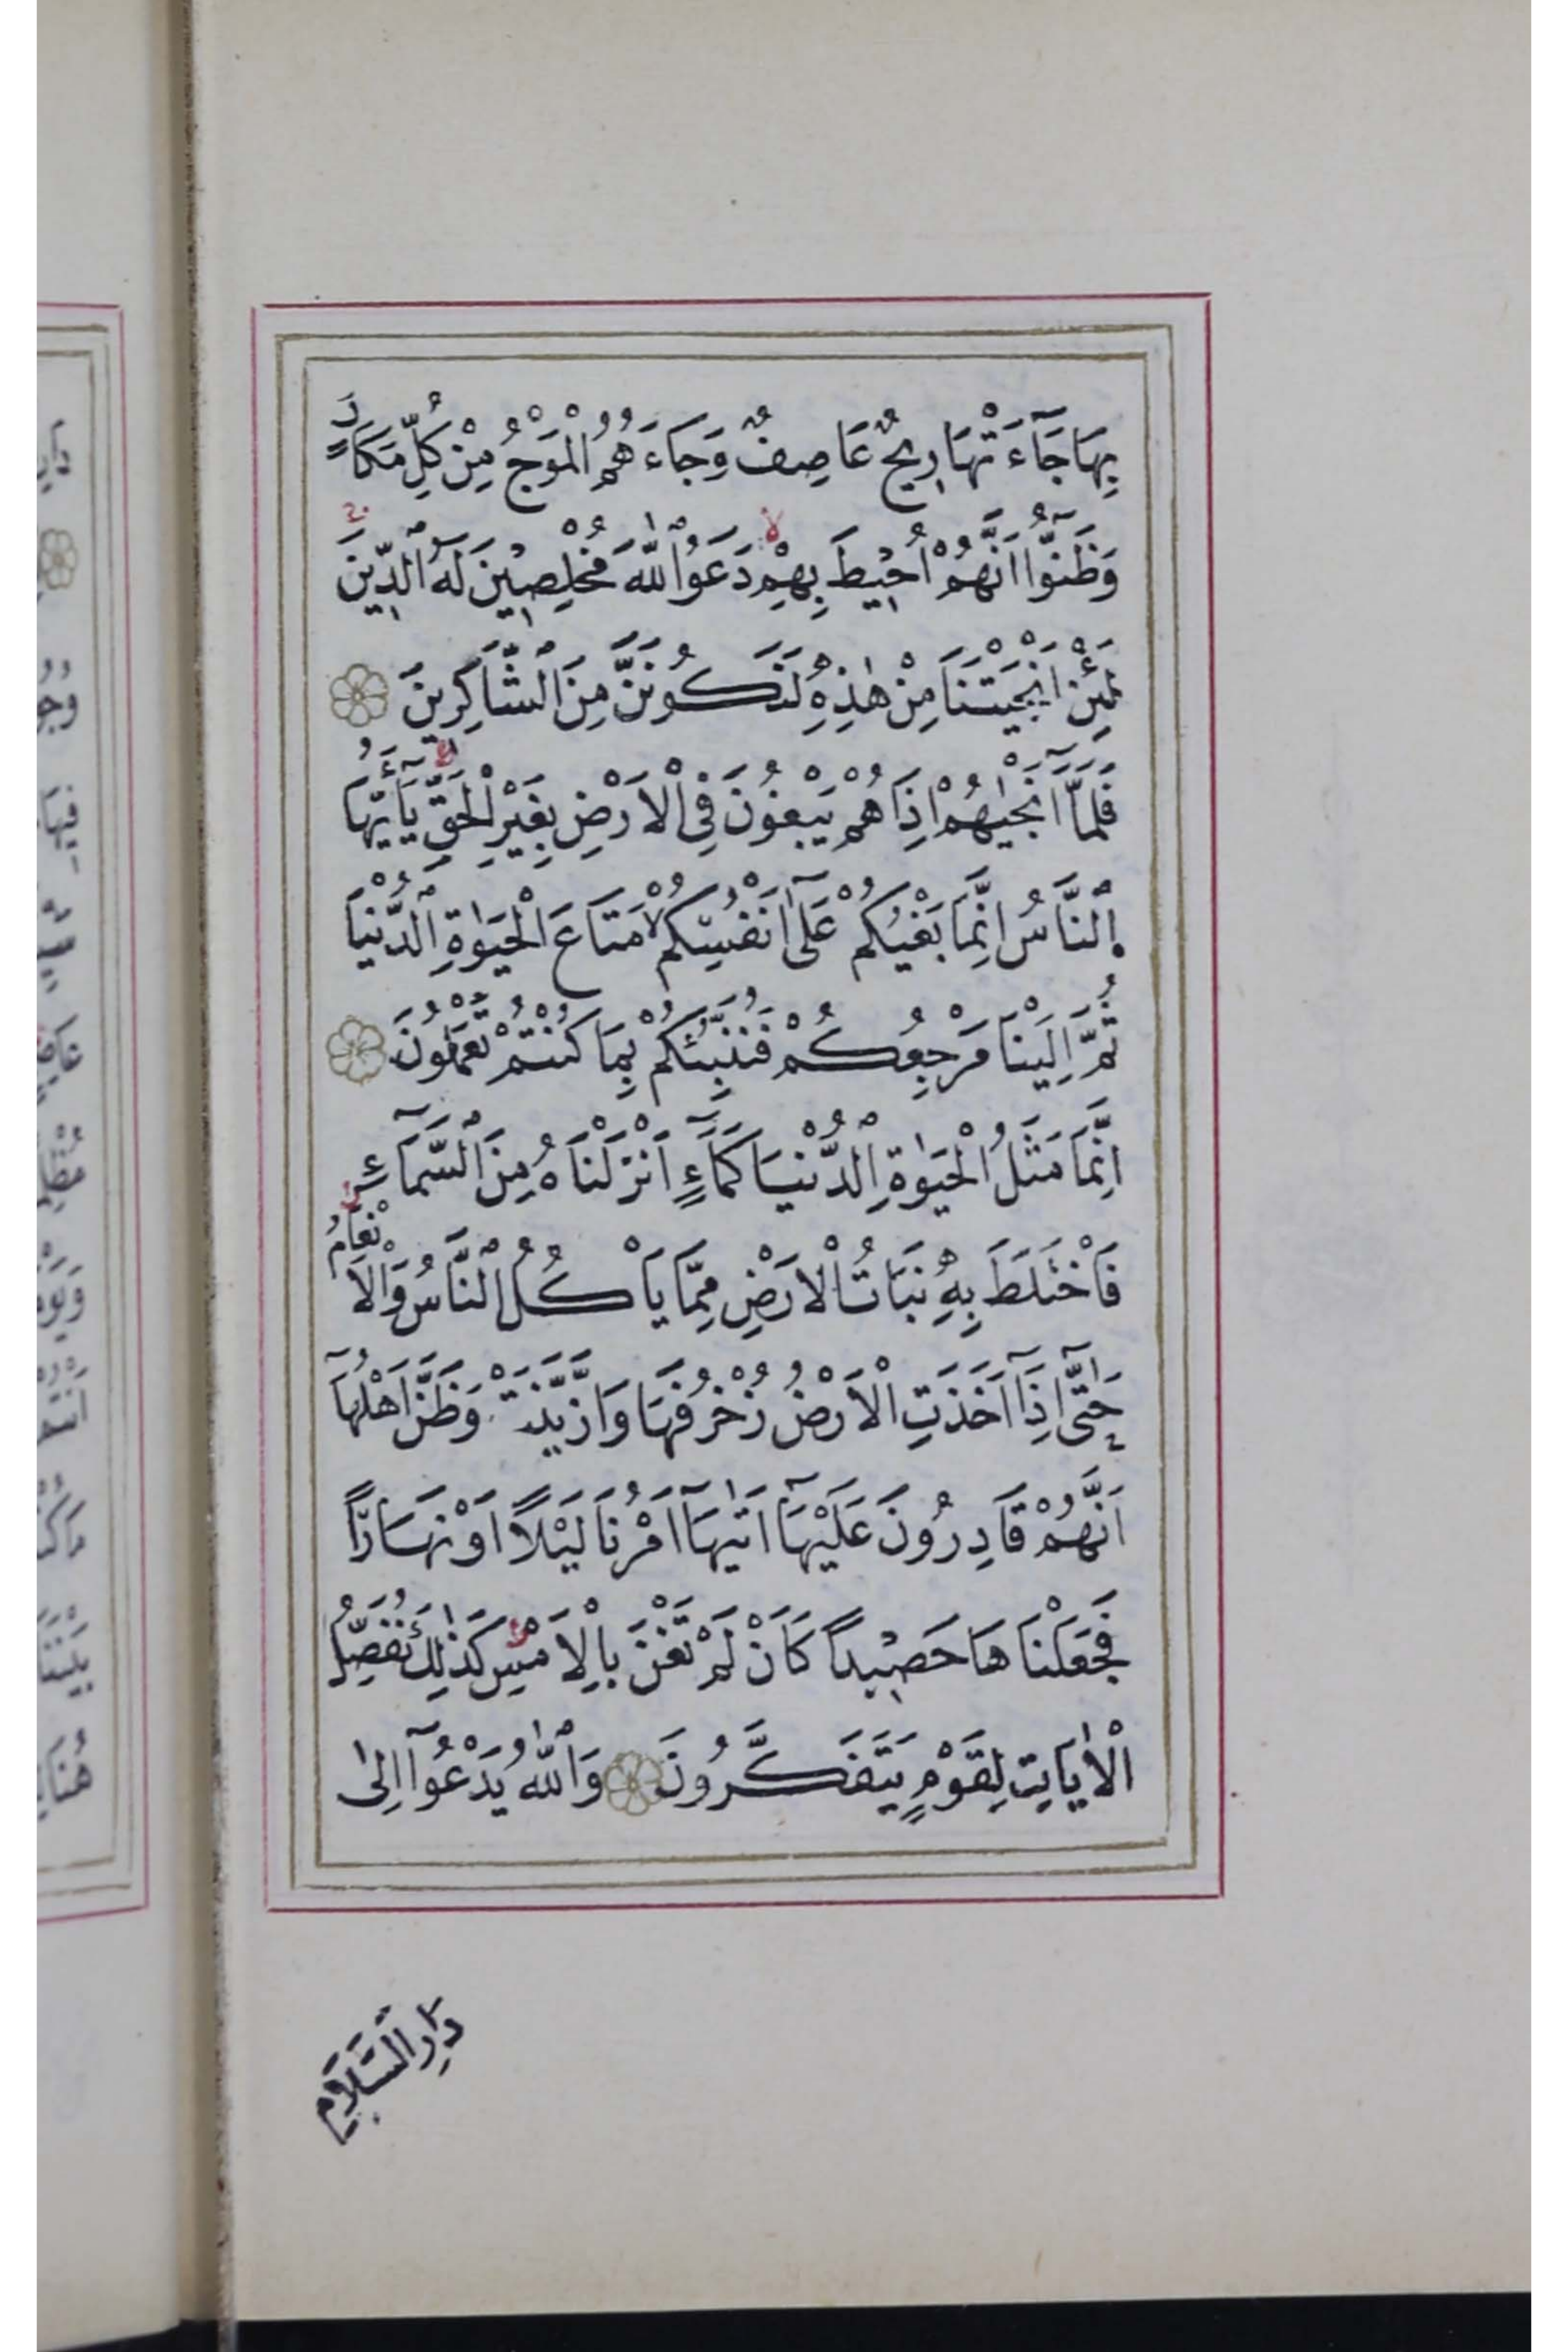 بِهَا جَآءَتْهَا رِيحٌ عَاصِفٌ وَجَاءَهُمُ الْمَوْجُ مِنْ كُلِّ مَكَانٍ
وَظَنُّٓوا اَنَّهُمْ اُحٖيطَ بِهِمْ دَعَوُا اللّٰهَ مُخْلِصٖينَ لَهُ الدّٖينَ
لَئِنْ اَنْجَيْتَنَا مِنْ هٰذِهٖ لَنَكُونَنَّ مِنَ الشَّاكِرٖينَ
فَلَمَّٓا اَنْجٰيهُمْ اِذَا هُمْ يَبْغُونَ فِي الْاَرْضِ بِغَيْرِ الْحَقِّ يَٓا اَيُّهَا
النَّاسُ اِنَّمَا بَغْيُكُمْ عَلٰٓى اَنْفُسِكُمْ لا مَتَاعَ الْحَيٰوةِ الدُّنْيَا
ثُمَّ اِلَيْنَا مَرْجِعُكُمْ فَنُنَبِّئُكُمْ بِمَا كُنْتُمْ تَعْمَلُونَ
اِنَّمَا مَثَلُ الْحَيٰوةِ الدُّنْيَا كَمَٓاءٍ اَنْزَلْنَاهُ مِنَ السَّمَٓاءِ
فَاخْتَلَطَ بِهٖ نَبَاتُ الْاَرْضِ مِمَّا يَاْكُلُ النَّاسُ وَالْاَنْعَامُ
حَتّٰٓى اِذَٓا اَخَذَتِ الْاَرْضُ زُخْرُفَهَا وَازَّيَّنَتْ وَظَنَّ اَهْلُهَٓا
اَنَّهُمْ قَادِرُونَ عَلَيْهَٓا اَتٰيهَٓا اَمْرُنَا لَيْلًا اَوْ نَهَارًا
فَجَعَلْنَاهَا حَصٖيدًا كَاَنْ لَمْ تَغْنَ بِالْاَمْسِ كَذٰلِكَ نُفَصِّلُ
الْاٰيَاتِ لِقَوْمٍ يَتَفَكَّرُونَ وَاللّٰهُ يَدْعُٓوا اِلٰى
دَارِ السَّلَامِ